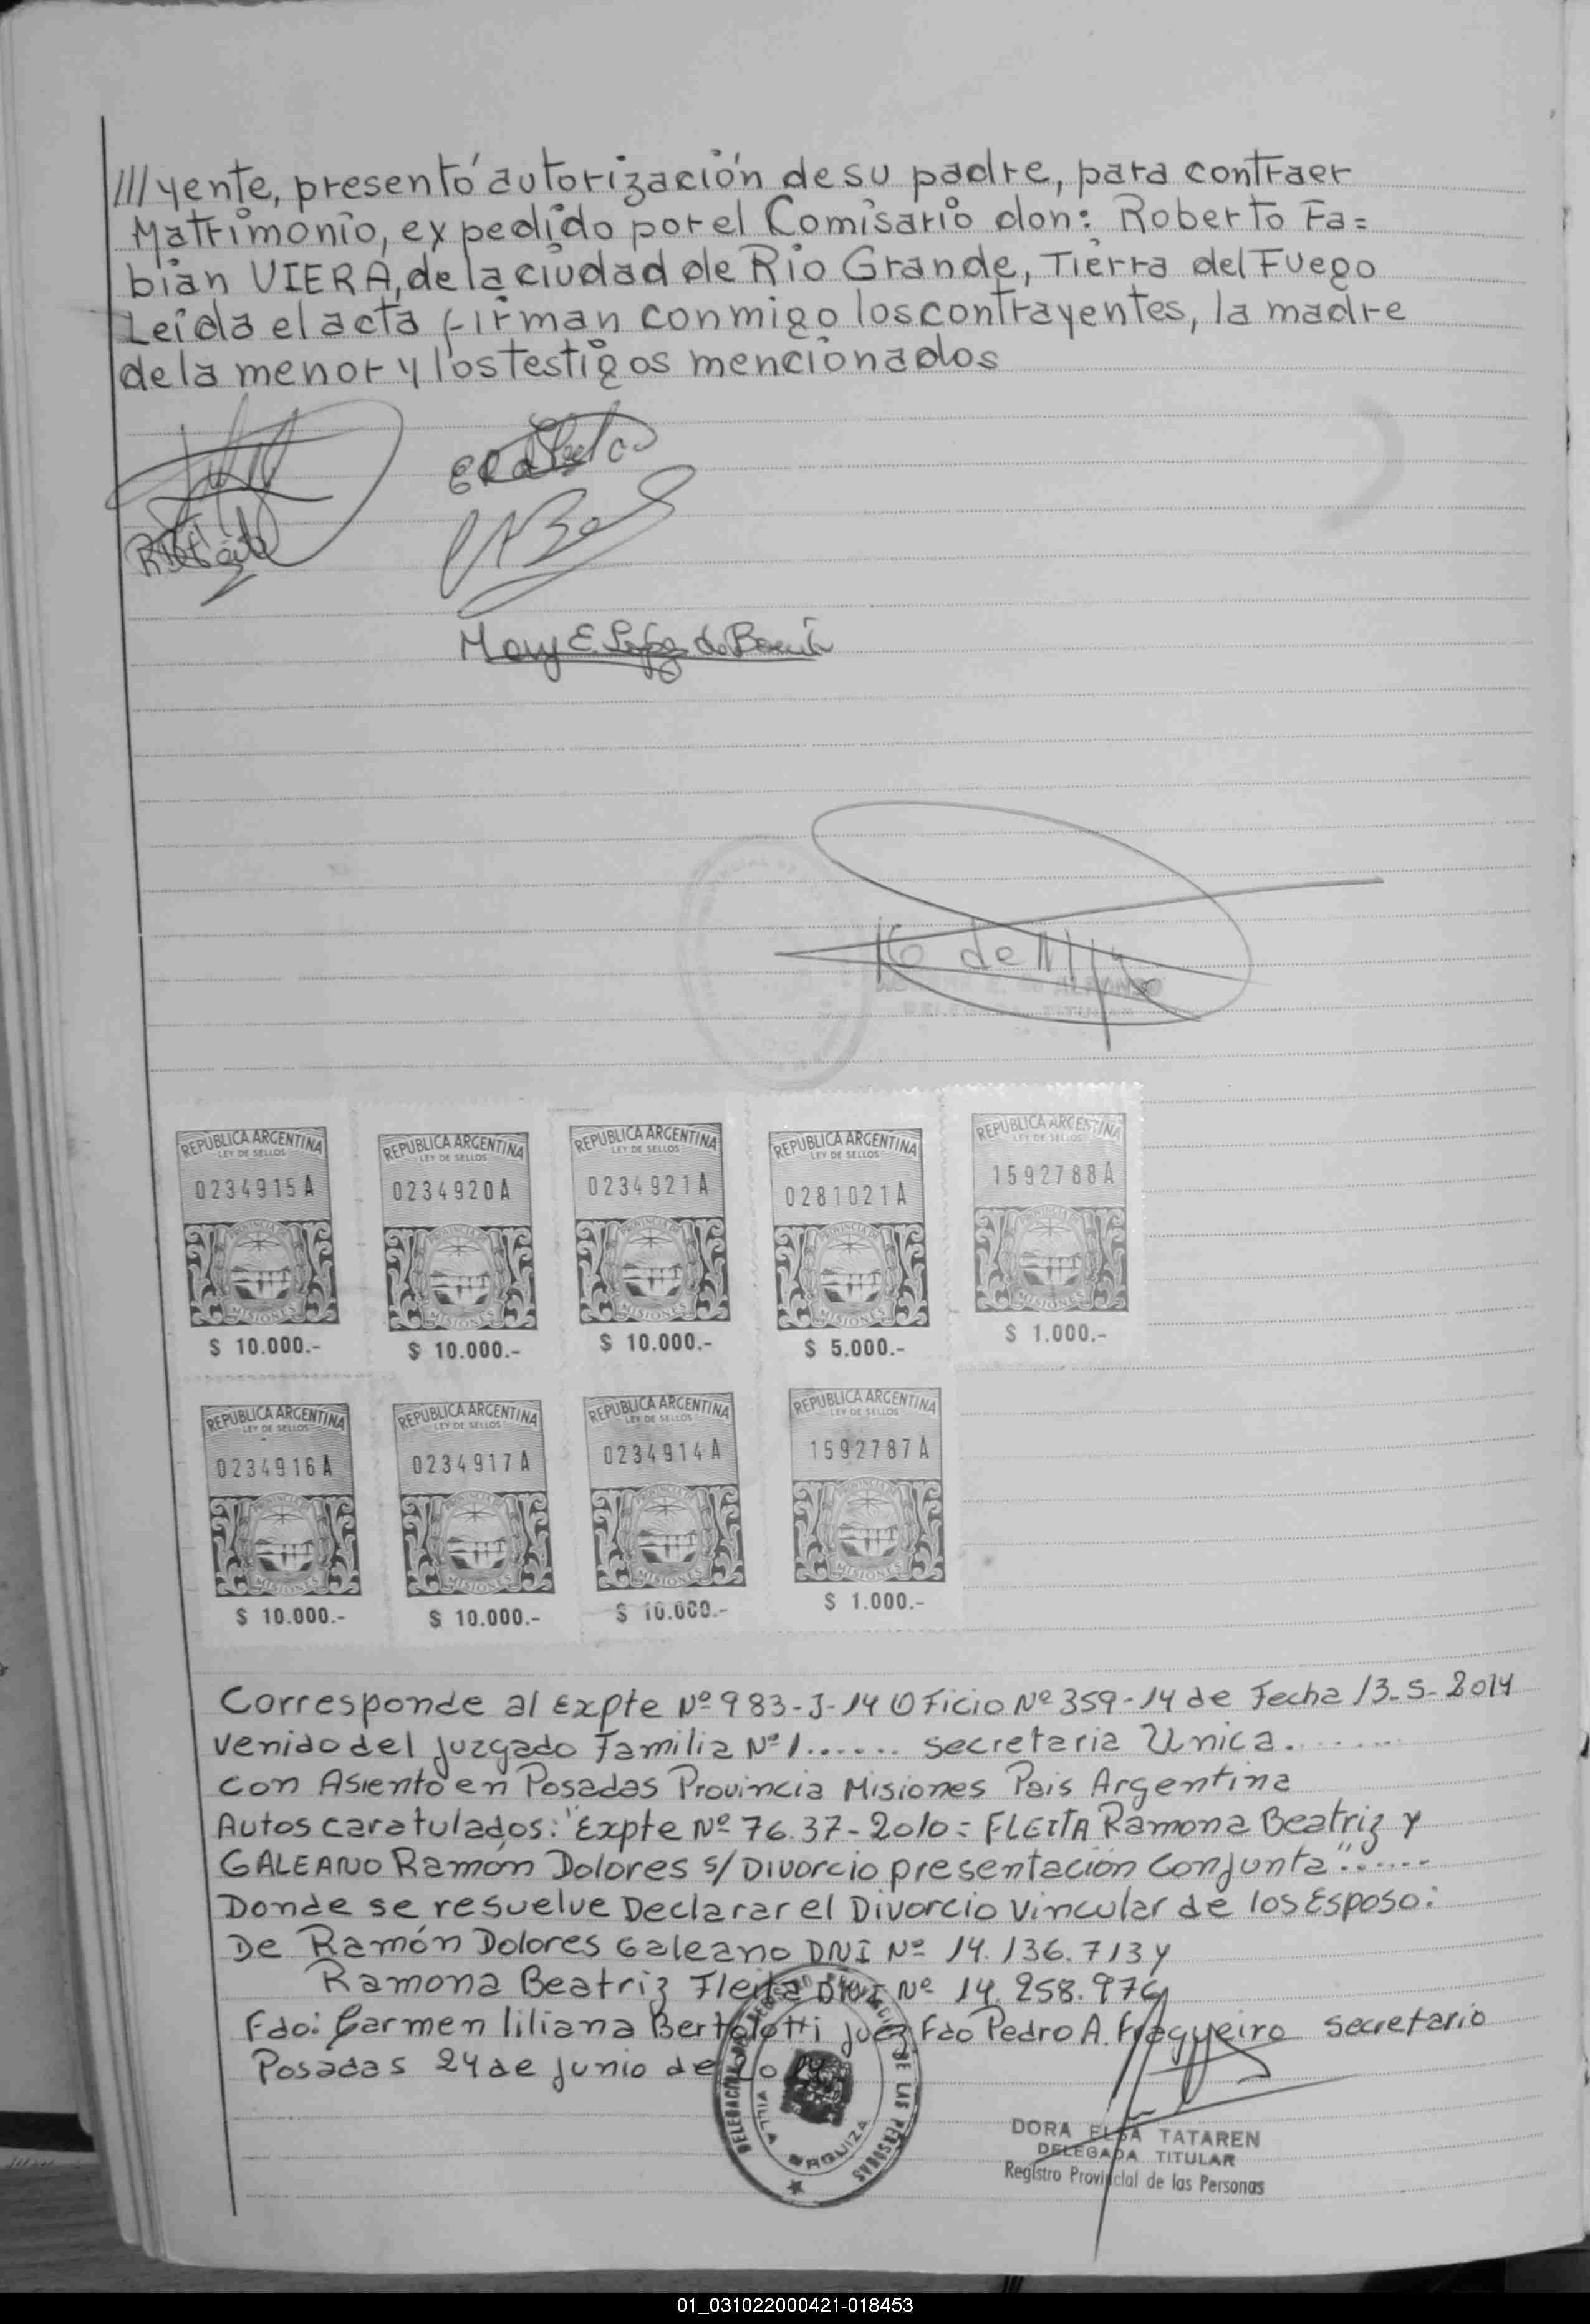 ///yente, presentó autorización de su padre, para contraer
Matrimonio, expedido por el Comisario don: Roberto Fa=
bian VIERA, de la ciudad de Rio Grande, Tierra del Fuego
Leída el acta firman conmigo los contrayentes, la madre
de la menor y los testigos mencionados
Mary E. López de
DELEGADA TITULAR
REPUBLICA ARGENTINA REPUBLICA ARGENTINA REPUBLICA ARGENTINA REPUBLICA ARGENTINA REPUBLICA ARGENTINA
LEY DE SELLOS LEY DE SELLOS LEY DE SELLOS LEY DE SELLOS LEY DE SELLOS
0234915A 0234920A 0234921A 0281021A 1592788A
PROVINCIA DE PROVINCIA DE PROVINCIA DE PROVINCIA DE PROVINCIA DE
MISIONES MISIONES MISIONES MISIONES MISIONES
$ 10.000.- $ 10.000.- $ 10.000.- $ 5.000.- $ 1.000.-
REPUBLICA ARGENTINA REPUBLICA ARGENTINA REPUBLICA ARGENTINA REPUBLICA ARGENTINA
LEY DE SELLOS LEY DE SELLOS LEY DE SELLOS LEY DE SELLOS
0234916A 0234917A 0234914A 1592787A
PROVINCIA DE PROVINCIA DE PROVINCIA DE PROVINCIA DE
MISIONES MISIONES MISIONES MISIONES
$ 10.000.- $ 10.000.- $ 10.000.- $ 1.000.-
Corresponde al Expte Nº 983-J-14 Oficio Nº 359-14 de Fecha 13-5-2014
venido del juzgado Familia Nº 1...... secretaria Unica.......
con Asiento en Posadas Provincia Misiones Pais Argentina
Autos caratulados: "Expte Nº 76.37-2010= FLEITA Ramona Beatriz y
GALEANO Ramón Dolores s/ Divorcio presentación Conjunta"......
Donde se resuelve Declarar el Divorcio Vincular de los Esposo:
De Ramón Dolores Galeano DNI Nº 14.136.713 y
Ramona Beatriz Fleita DNI Nº 14.258.976
Fdo: Carmen liliana Bertolotti juez Fdo Pedro A. Fragueiro secretario
Posadas 24 de junio de 2014
DELEGACION DEL REGISTRO PROVINCIAL DE LAS PERSONAS
VILLA URQUIZA
DORA ELSA TATAREN
DELEGADA TITULAR
Registro Provincial de las Personas
01_031022000421-018453